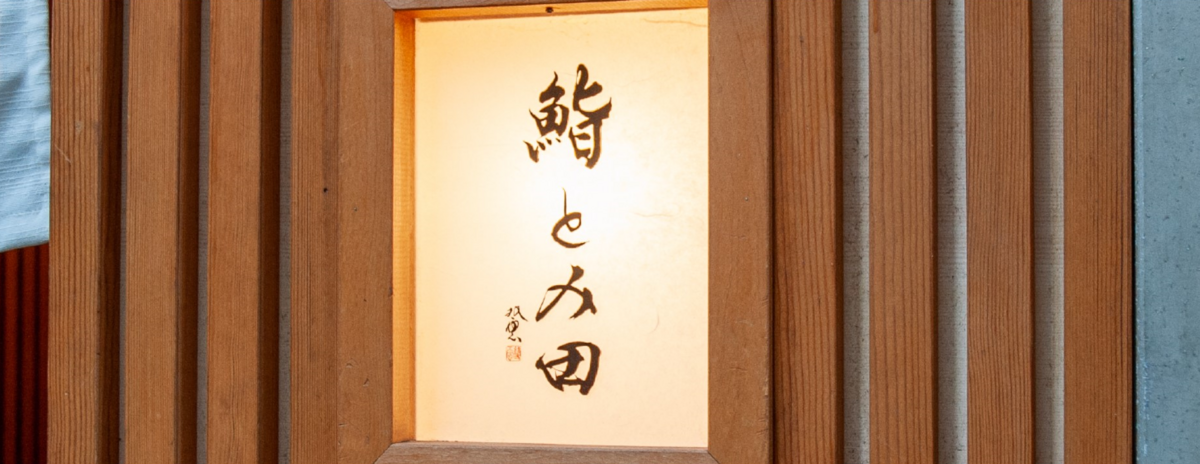 鮨とみ田